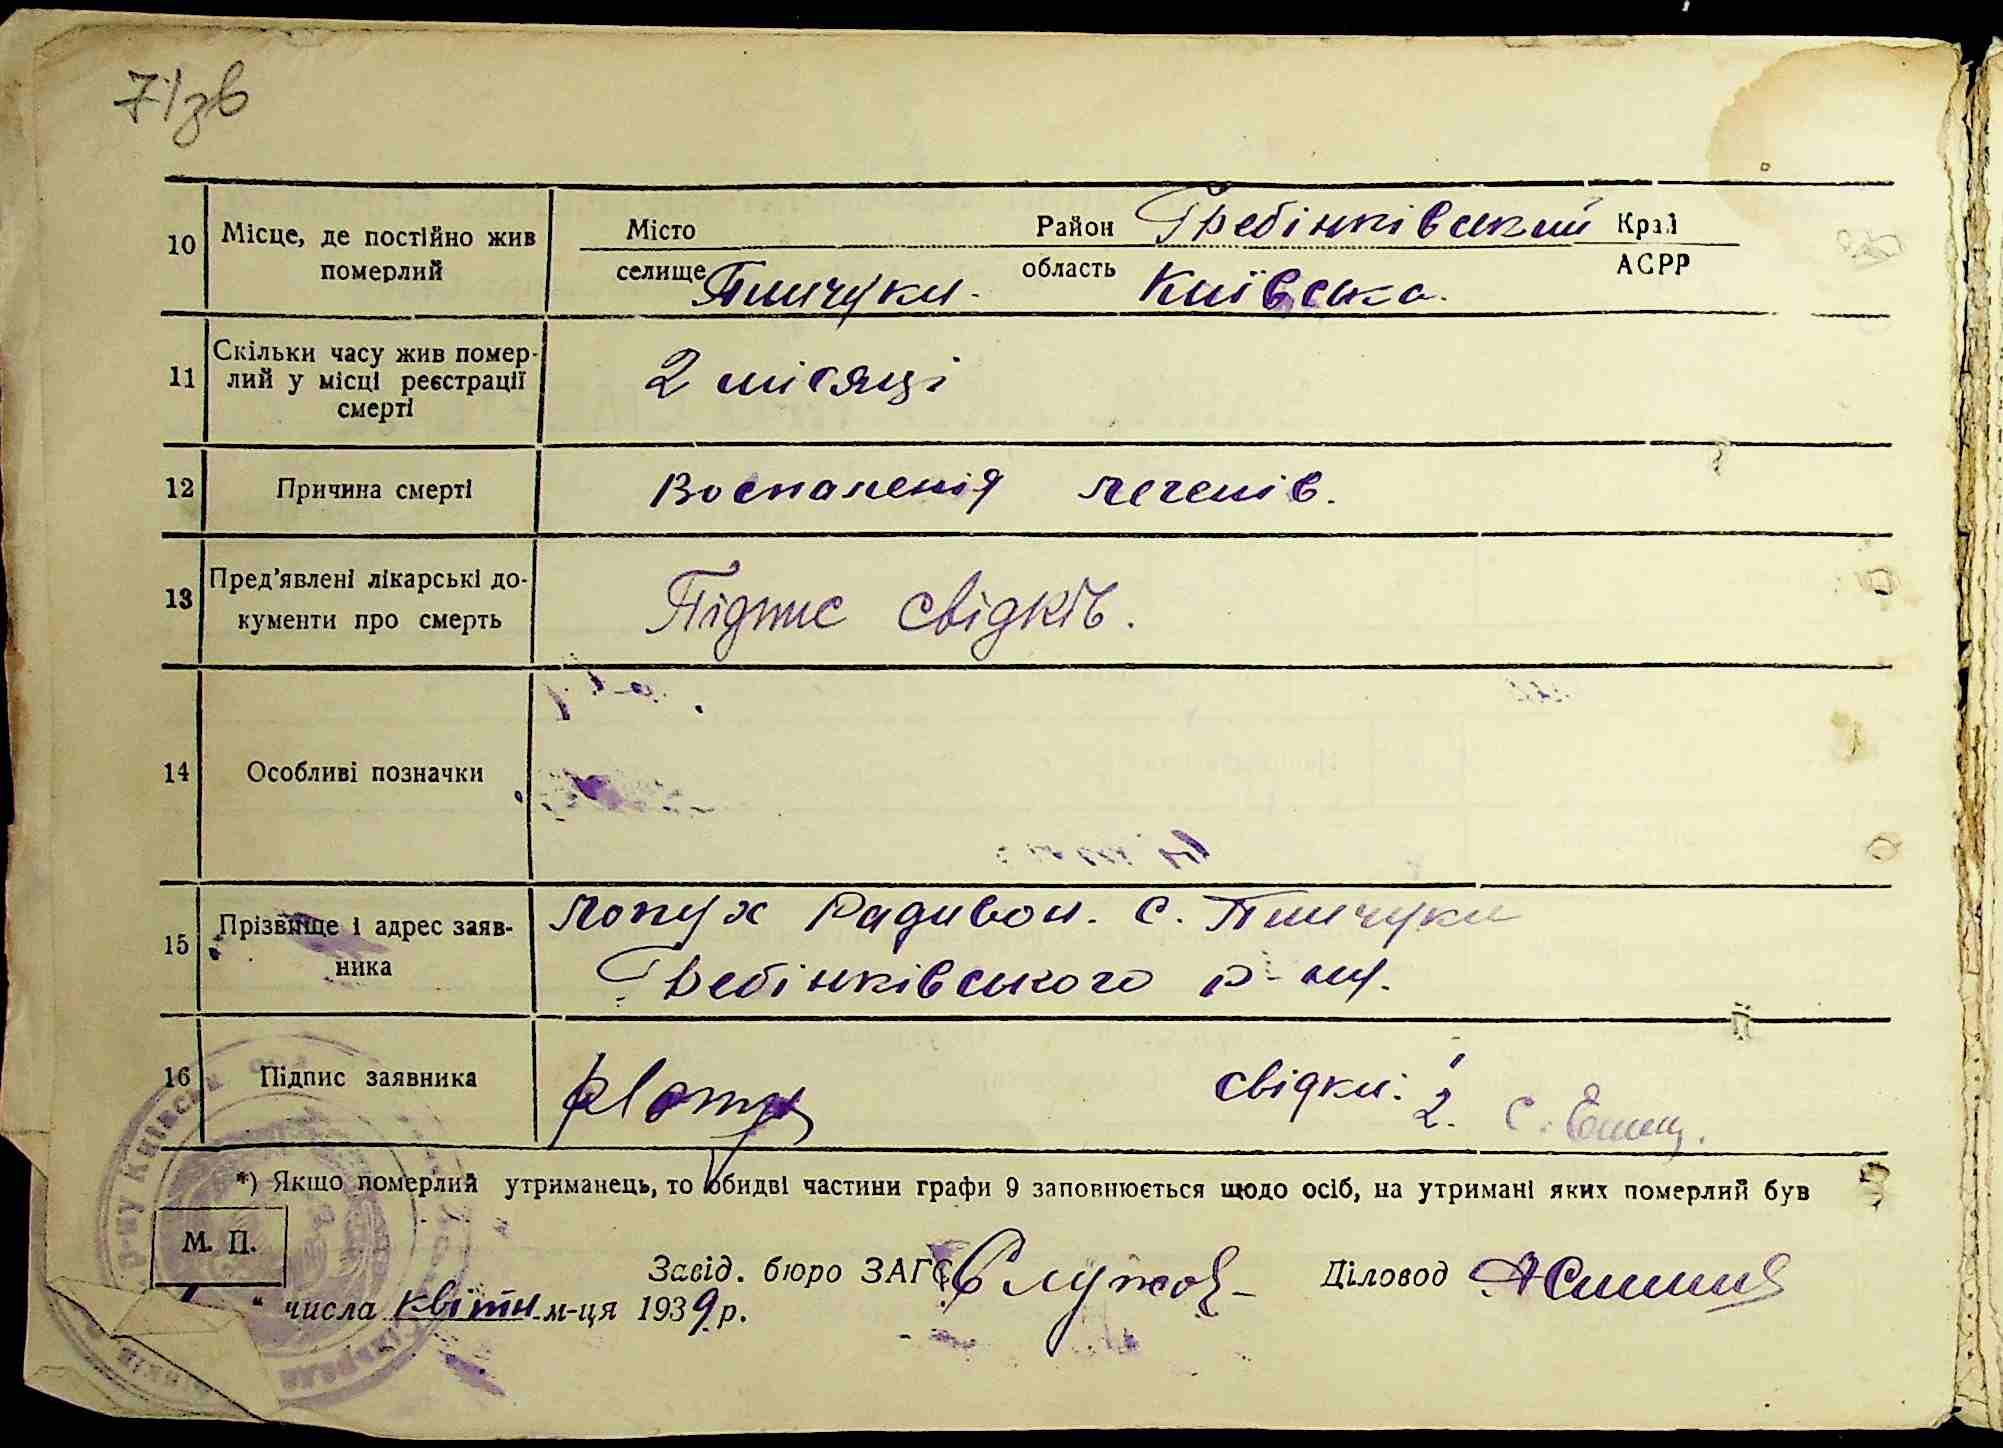 71зв
10 Місце, де постійно жив померлий
Місто Район Гребінківський Край
селище Пинчуки. область Київська. АСРР
11 Скільки часу жив помер-
лий у місці реєстрації
смерті
2 місяці
12 Причина смерті Воспаленія легенів.
13 Пред'явлені лікарські до-
кументи про смерть
Підпис свідків.
14 Особливі позначки
15 Прізвище і адрес заяв-
ника
Лопух Радивон. с. Пинчуки
Гребінківського р-ну.
16 Підпис заявника
свідки: 1
2. С.
*) Якщо померлий утриманець, то обидві частини графи 9 заповнюється щодо осіб, на утримані яких померлий був
М. П.
Завід. бюро ЗАГС Діловод
" числа квітн м-ця 1939 р.